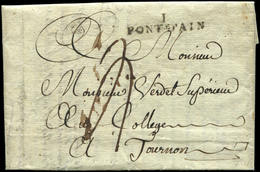 1
PONT-S-AIN
Monsieur
Monsieur Verdet Supérieur
Du College
A Tournon